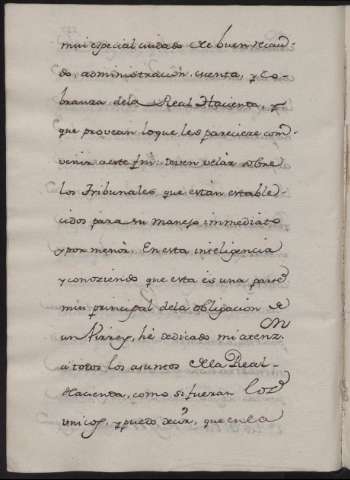 mui especial cuidado de buen recau-
do, administracion, cuenta, y co-
branza dela Real Hacienta, y
que provean loque les pareciere com
venir aeste fin: deven velàr sobre
los Tribunales, que están estable-
cidos para su manejo immediato
y por menòr. En esta inteligencia
y conoziendo que esta és una parte
mui principal dela obligacion de
un Virrey, hé dedicado mi atenz.on
a todos los asuntos dela Real
Hacienta, como si fueran los
vnicos, y puedo decir, que en la